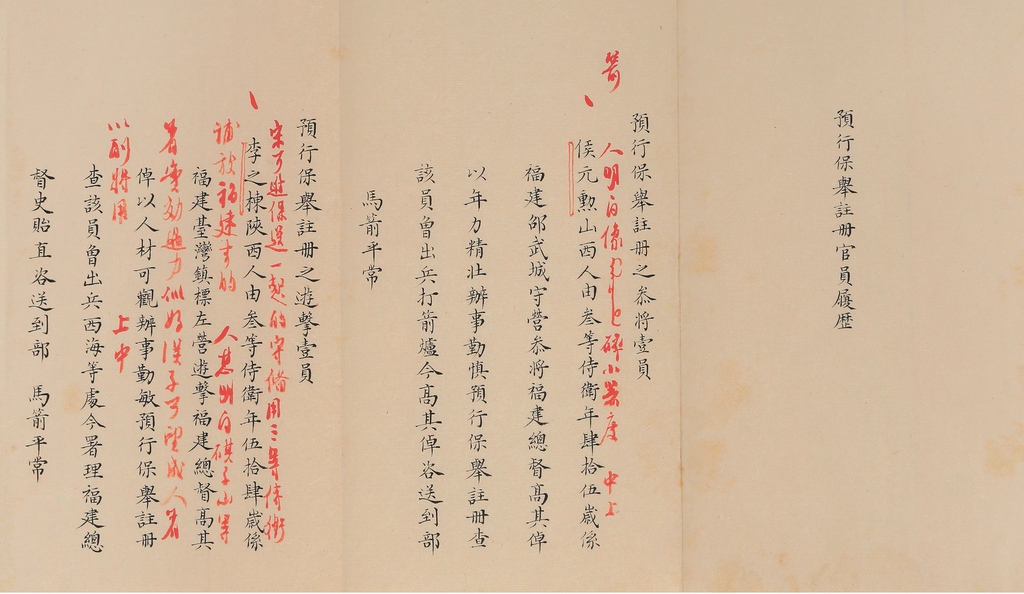 預行保舉註冊官員履歷
預行保舉註冊之叅將壹員
侯元勲山西人由叁等侍衛年肆拾伍歲係
福建邵武城守營叅將福建總督高其倬
以年力精壯辦事勤慎預行保舉註冊查
該員曾出兵打箭爐今高其倬咨送到部
馬箭平常
人明白像 小器度 中上
預行保舉註冊之遊擊壹員
李之棟陝西人由叁等侍衛年伍拾肆歲係
福建臺灣鎮標左營遊擊福建總督高其
倬以人材可觀辦事勤敏預行保舉註冊
查該員曾出兵西海等處今署理福建總
督史貽直咨送到部 馬箭平常
宋可進保送一起的守備用三等侍衛
補放福建去的 人甚明白
着實効過力似好漢子可望成人者
以副將用 上中